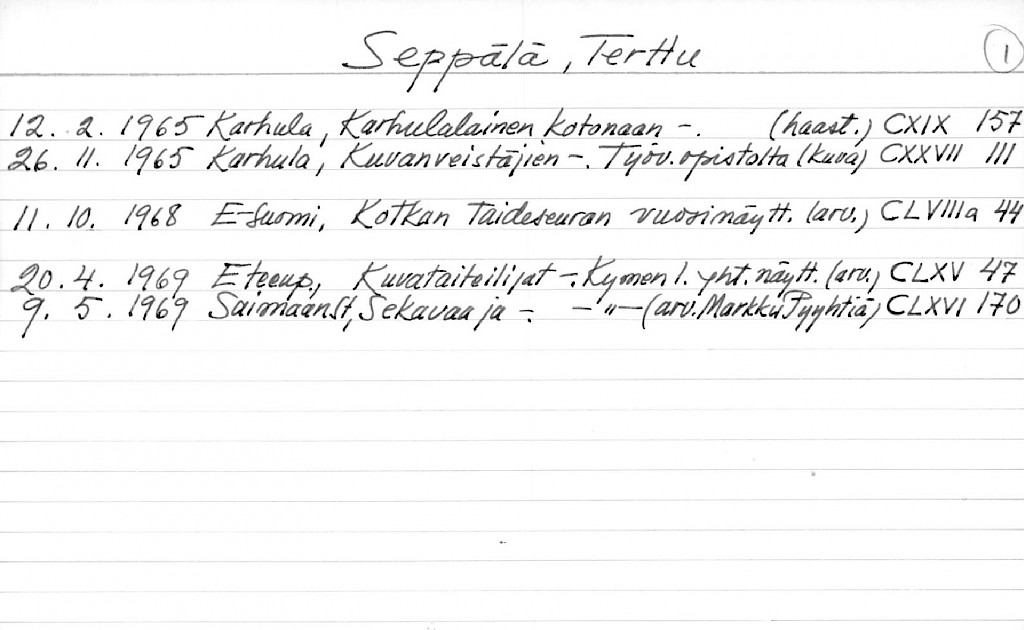 Seppälä, Terttu 1
12. 2. 1965 Karhula, Karhulalainen kotonaan -. (haast.) CXIX 157
26. 11. 1965 Karhula, Kuvanveistäjien -. Työv.opistolta (kuva) CXXVII 111
11. 10. 1968 E-Suomi, Kotkan Taideseuran vuosinäytt. (arv.) CLVIIIa 44
20. 4. 1969 Eteeup., Kuvataiteilijat -. Kymen l. yht. näytt. (arv.) CLXV 47
9. 5. 1969 Saimaan St, Sekavaa ja -. - " - (arv. Markku Pyyhtiä) CLXVI 170